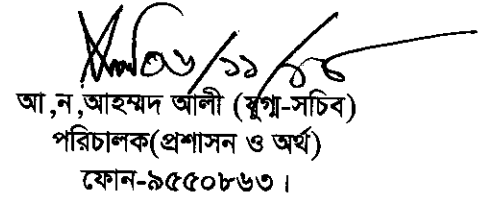 ০৬/১১/১৮
আ,ন,আহম্মদ আলী (যুগ্ম-সচিব)
পরিচালক(প্রশাসন ও অর্থ)
ফোন-৯৫৫০৮৬৩।